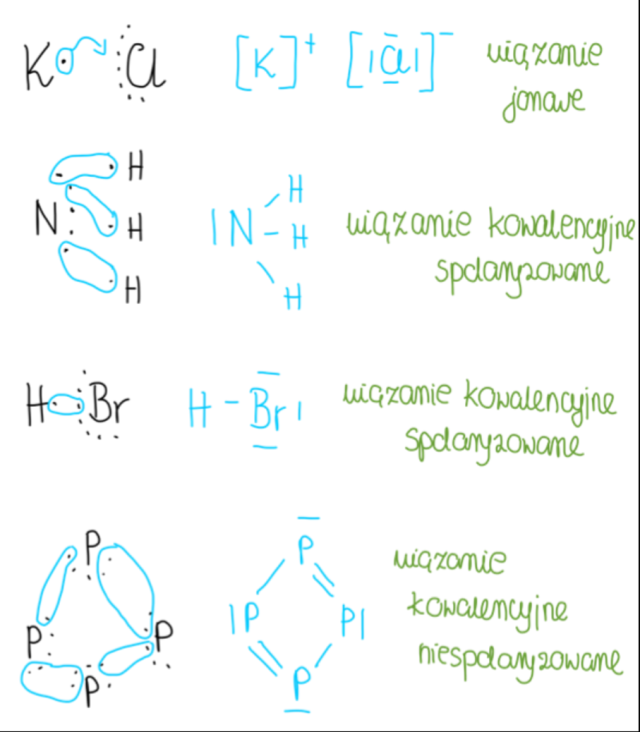 K Cl [K]⁺ [|Cl|]⁻ wiązanie
jonowe
H
N H |N - H wiązanie kowalencyjne
H
H spolaryzowane
H
H Br H - Br| wiązanie kowalencyjne
spolaryzowane
P P wiązanie
P P |P P| kowalencyjne
P P niespolaryzowane